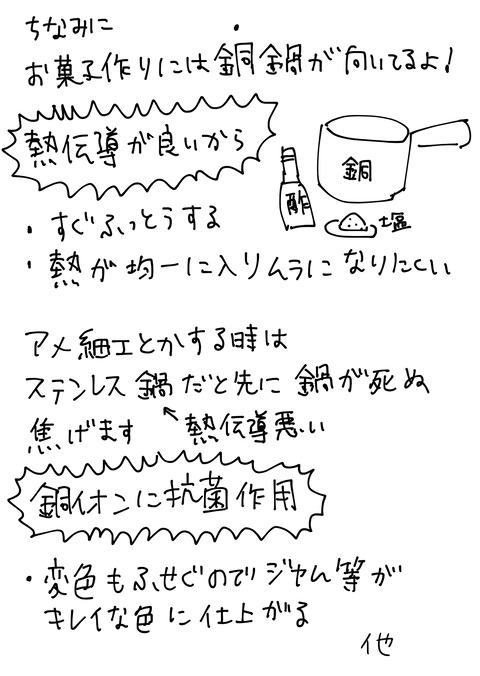 ちなみに
お菓子作りには銅鍋が向いてるよ!
熱伝導が良いから
銅
酢
塩
・すぐふっとうする
・熱が均一に入りムラになりにくい
アメ細工とかする時は
ステンレス鍋だと先に鍋が死ぬ
焦げます ↖熱伝導悪い
銅イオンに抗菌作用
・変色もふせぐのでジャム等が
キレイな色に仕上がる
他